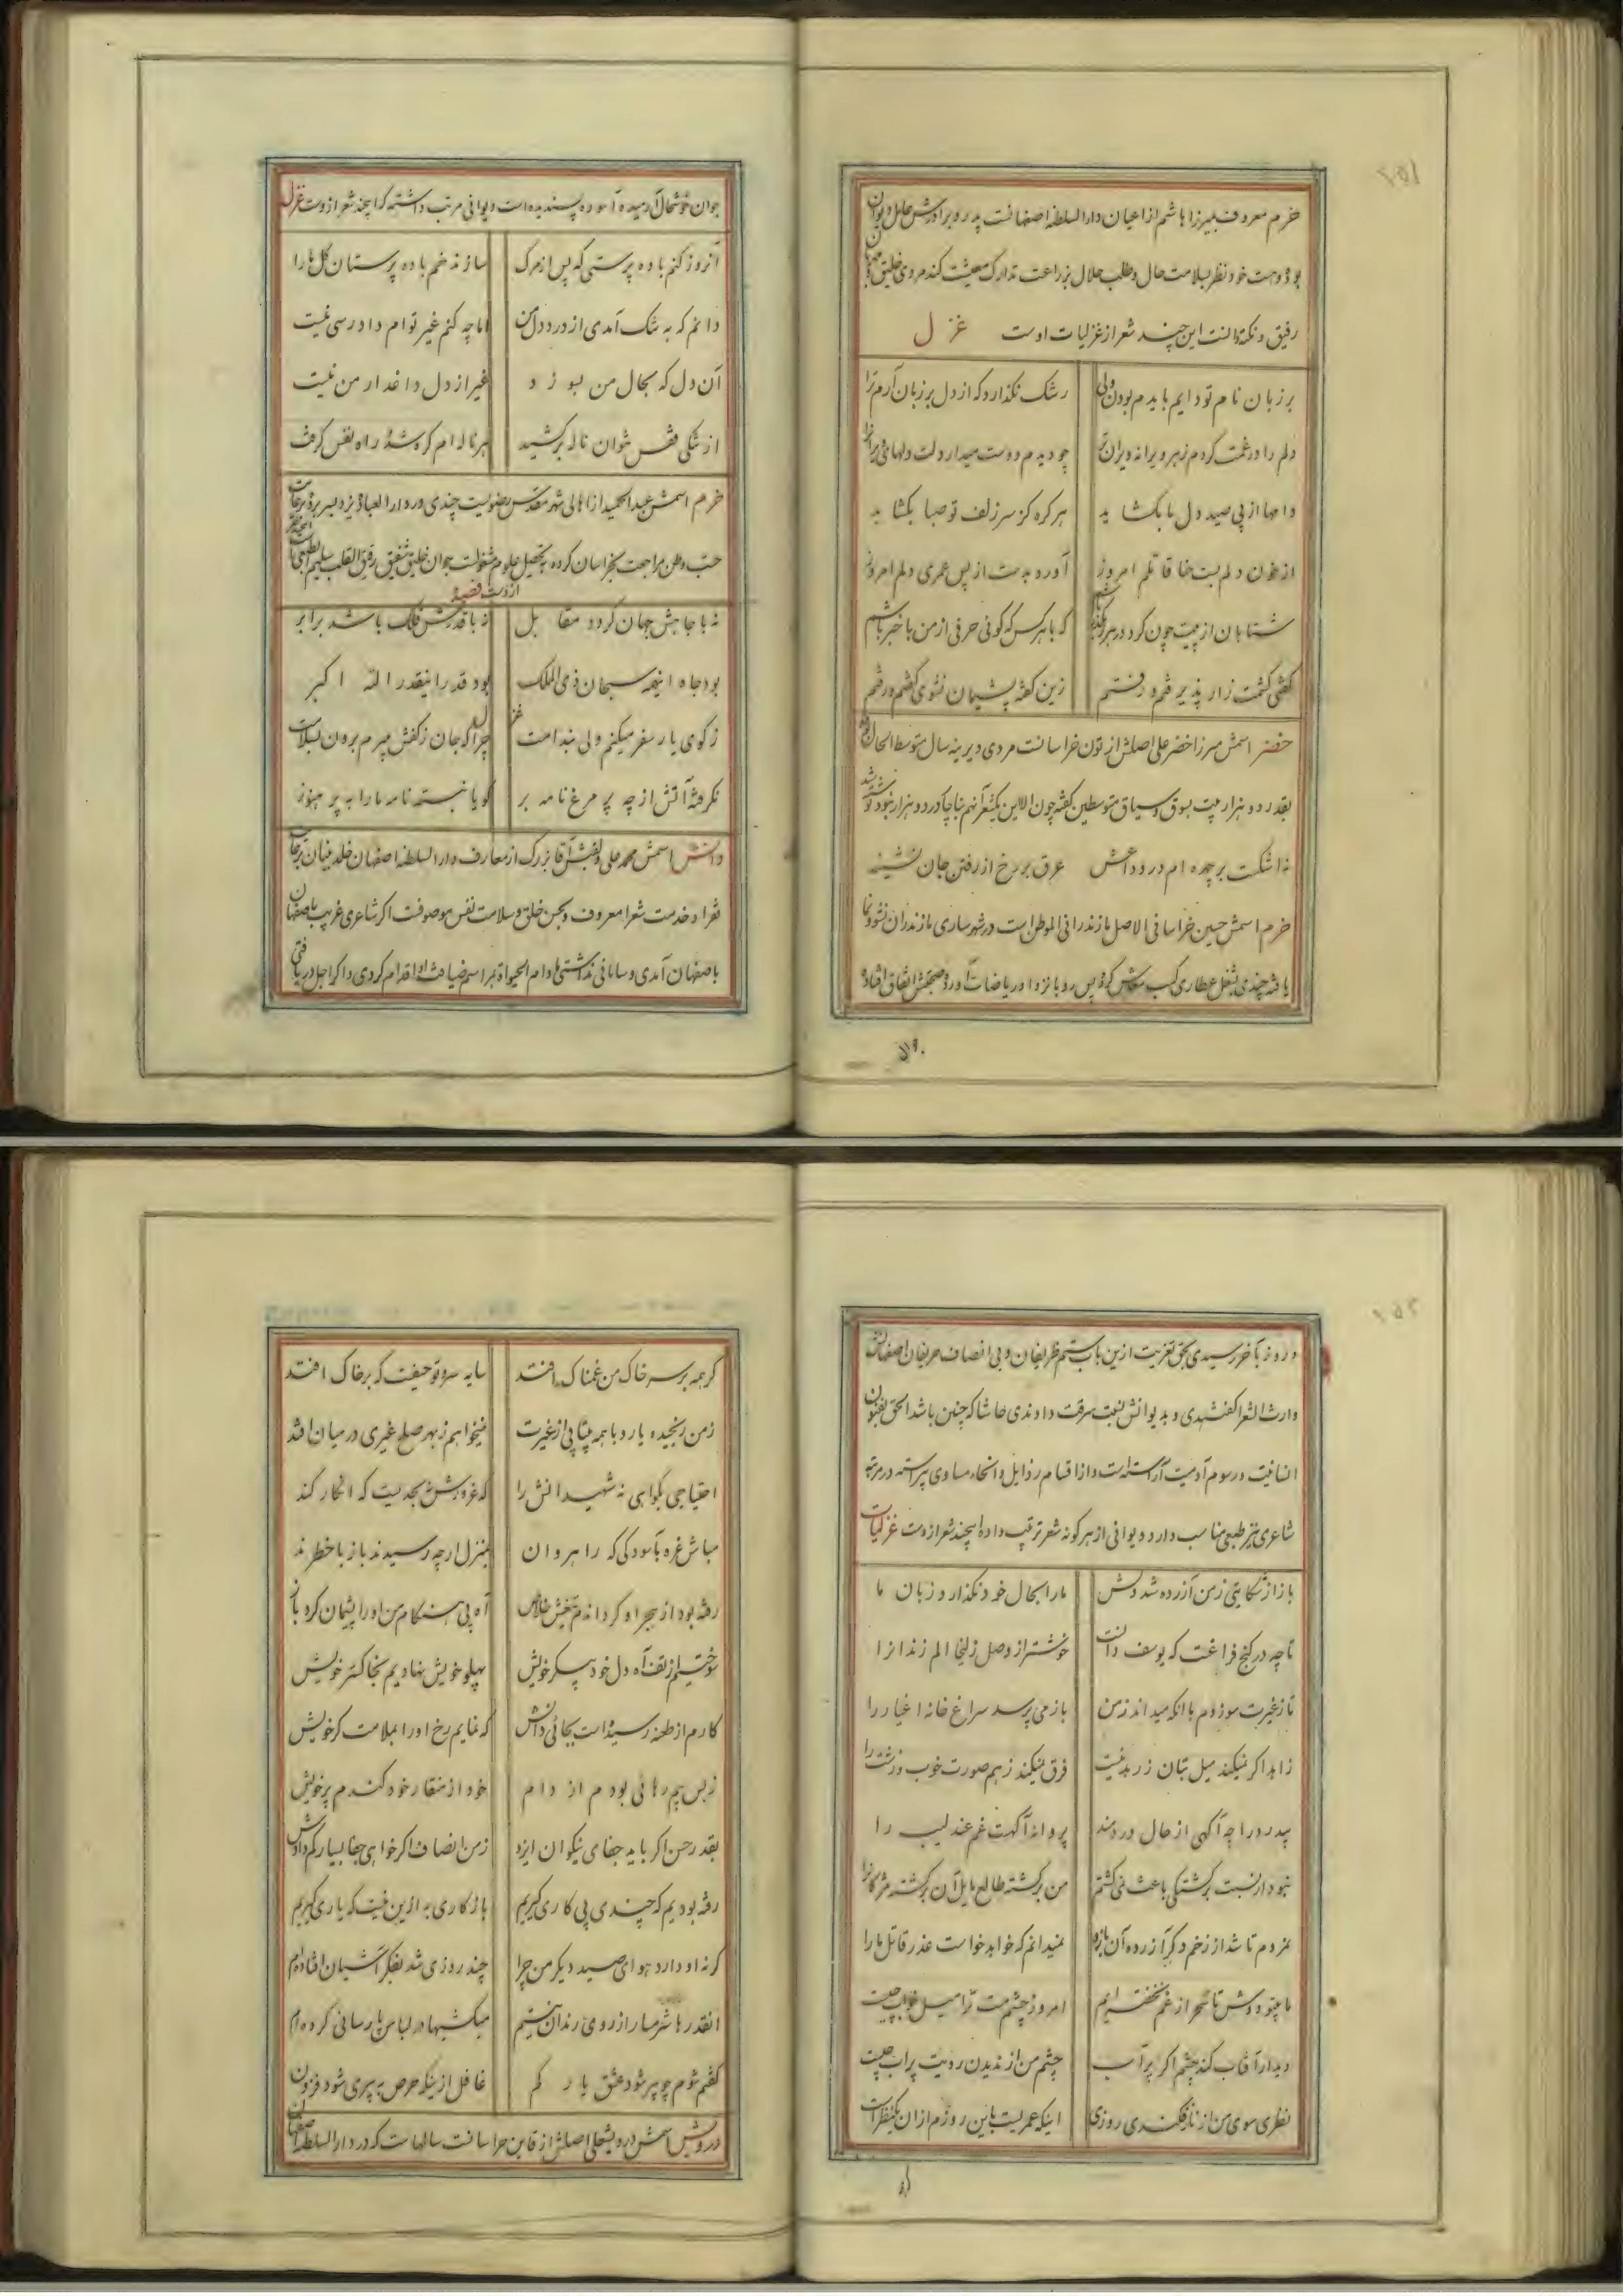 خرم معروف بمیرزا هاشم از اعیان دارالسلطنه اصفهانست پدر و برادرش عامل دیوان
بوده و هست خود نظر بسلامت حال و طلب حلال بزراعت تدارک معیشت کند مردی خلیق مهربان
رفیق و نکته دانست این چند شعر از غزلیات اوست غزل
بر زبان نام تو دایم بایدم بودن ولی رشک نگذارد که از دل بر زبان آرم ترا
دلم را در غمت کردم ز هر ویرانه ویران‌تر چو دیدم دوست میدارد دلت دلهای ویران را
دامها از پی صید دل ما بگشاید هر گره کز سر زلف تو صبا بگشاید
از خون دلم بست حنا قاتلم امروز آورد بدست از پس عمری دلم امروز
شتابان از پیت چون گرد در هر رهگذر باشم که با هر کس که گوئی حرفی از من با خبر باشم
گفتی کشمت زار پذیرفتم و رفتم زین گفته پشیمان نشوی گفتم و رفتم
خضر اسمش میرزا خضر علی اصلش از تون خراسانست مردی دیرینه سال متوسط الحال
بقدر دو هزار بیت بسوق و سیاق متوسطین گفته چون الا این یکشعر آنهم بناچار در دو هزار نبود نوشته شد
نه اشکست بر چهره ام در وداعش عرق بر رخ از رفتن جان نشینه
خرم اسمش حسین خراسانی الاصل مازندرانی الموطن است در شهر ساری مازندران نشو و نما
یافته چندی بشغل عطاری کسب معاش کرده پس رو بانزوا و ریاضات آورد صحبتش اتفاق افتاد
جوان خوشحال آرمیده آسوده پسندیده است دیوانی مرتب داشته که اینچند شعر ازوست غزل
آنروز کنم باده پرستی که پس از مرگ سازند خم باده پرستان گل ما را
دانم که به تنگ آمدی از درد دل من اما چه کنم غیر توام دادرسی نیست
آن دل که بحال من بسوزد غیر از دل داغدار من نیست
از تنگی قفس نتوان ناله برکشید هر ناله ام گره شد و راه نفس گرفت
خرم اسمش عبدالحمید از اهالی شهر مقدس رضویست چندی در دارالعباده یزد بسر برده بر غایت
حب وطن مراجعت بخراسان کرده به تحصیل علوم مشغولست جوان خلیق شفیق رقیق القلب سلیم الطبعی است
ازوست قصیده
نه با جاهش جهان گردد مقابل نه با قدرش فلک باشد برابر
بود جاه اینهمه سبحان ذی الملک بود قدر اینقدر الله اکبر
ز کوی یار سفر میکنم ولی بندامت چرا که جان ز کفش میبرم برون بسلامت
نگرفته آتش از چه پر مرغ نامه بر گویا نبسته نامه ما را به پر هنوز
دانش اسمش محمد علی و لقبش آقا بزرگ از معارف دارالسلطنه اصفهان خلد بنیان
فقرا و خدمت شعرا معروف و بحسن خلق و سلامت نفس موصوفست اگر شاعری غریب باصفهان
باصفهان آمدی و سامانی نداشتی مادام الحیوة بمراسم ضیافت او اقدام کردی و اگر اجل دریافتی
در روز بآخر رسیدی بحق تعزیت ازین باب ستم ظریفان و بی انصاف حریفان اصفهانش
وارث الشعرا گفتندی و بدیوانش نسبت سرقت دادندی حاشا که چنین باشد الحق بفنون
انسانیت و رسوم آدمیت آراسته است و از اقسام رذایل و انحاء مساوی پیراسته در مرتبه
شاعری نیز طبعی مناسب دارد و دیوانی از هر گونه شعر ترتیب داده اینچند شعر ازوست غزلیات
باز از شکایتی ز من آزرده شد دلش ما را بحال خود نگذارد زبان ما
تا چه در کنج فراغت که یوسف دانست خوشتر از وصل زلیخا الم زندانرا
تا ز غیرت سوزدم با آنکه میداند ز من باز می پرسد سراغ خانه اغیار را
زاهد اگر نمیکند میل بتان ز زهد نیست فرق نمیکند ز هم صورت خوب و زشت را
بیدرد را چه آگهی از حال دردمند پروانه آگهست غم عندلیب را
نبود ار نسبت برگشتگی باعث نمی گشتم من برگشته طالع مایل آن برگشته مژگانرا
نمردم تا شد از زخم دگر آزرده آن بازو نمیدانم که خواهد خواست عذر قاتل ما را
ما بیتو دوش تا سحر از غم نخفته ایم امروز چشم مست ترا میل خواب چیست
دیدار آفتاب کند چشم اگر پر آب چشم من از ندیدن رویت پر آب چیست
نظری سوی من از ناز فکندی روزی اینکه عمریست باین روزم از آن یکنظر است
گر همه بر سر خاک من غمناک افتد سایه سرو تو حیفست که بر خاک افتد
ز من رنجیده یار و با همه بیتابی از غیرت نمیخواهم ز بهر صلح غیری در میان افتد
احتیاجی بگواهی نه شهیدانش را که غرورش نه بحدیست که انکار کند
مباش غره بآسودگی که راهروان بمنزل ار چه رسیدند باز با خطرند
رفته بود از هجر او گرداندم بختش خلاص آه بی هنگام من او را پشیمان کرد باز
سوختیم از تف آه دل خود پیکر خویش پهلو خویش نهادیم بخاکستر خویش
کارم از طعنه رسیده است بجائی دانش که نمایم رخ او را بملامت گر خویش
ز بس بیم رهائی بودم از دام خود از منقار خود کندم پر خویش
بقدر حسن اگر باید جفای نیکوان ایزد ز من انصاف اگر خواهی جفا بسیار کم دادش
رفته بودیم که چندی پی کاری گیریم باز کاری به ازین نیست که یاری گیریم
گر نه او دارد هوای صید دیگر من چرا چند روزی شد بفکر آشیان افتاده ام
آنقدرها شرمسار از روی رندان نیستم میکشیها در لباس پارسائی کرده ام
گفتم شوم چو پیر شود عشق یار کم غافل ازینکه حرص به پیری شود فزون
درویش اسمش درویشعلی اصلش از قاین خراسانست سالهاست که در دارالسلطنه اصفهان